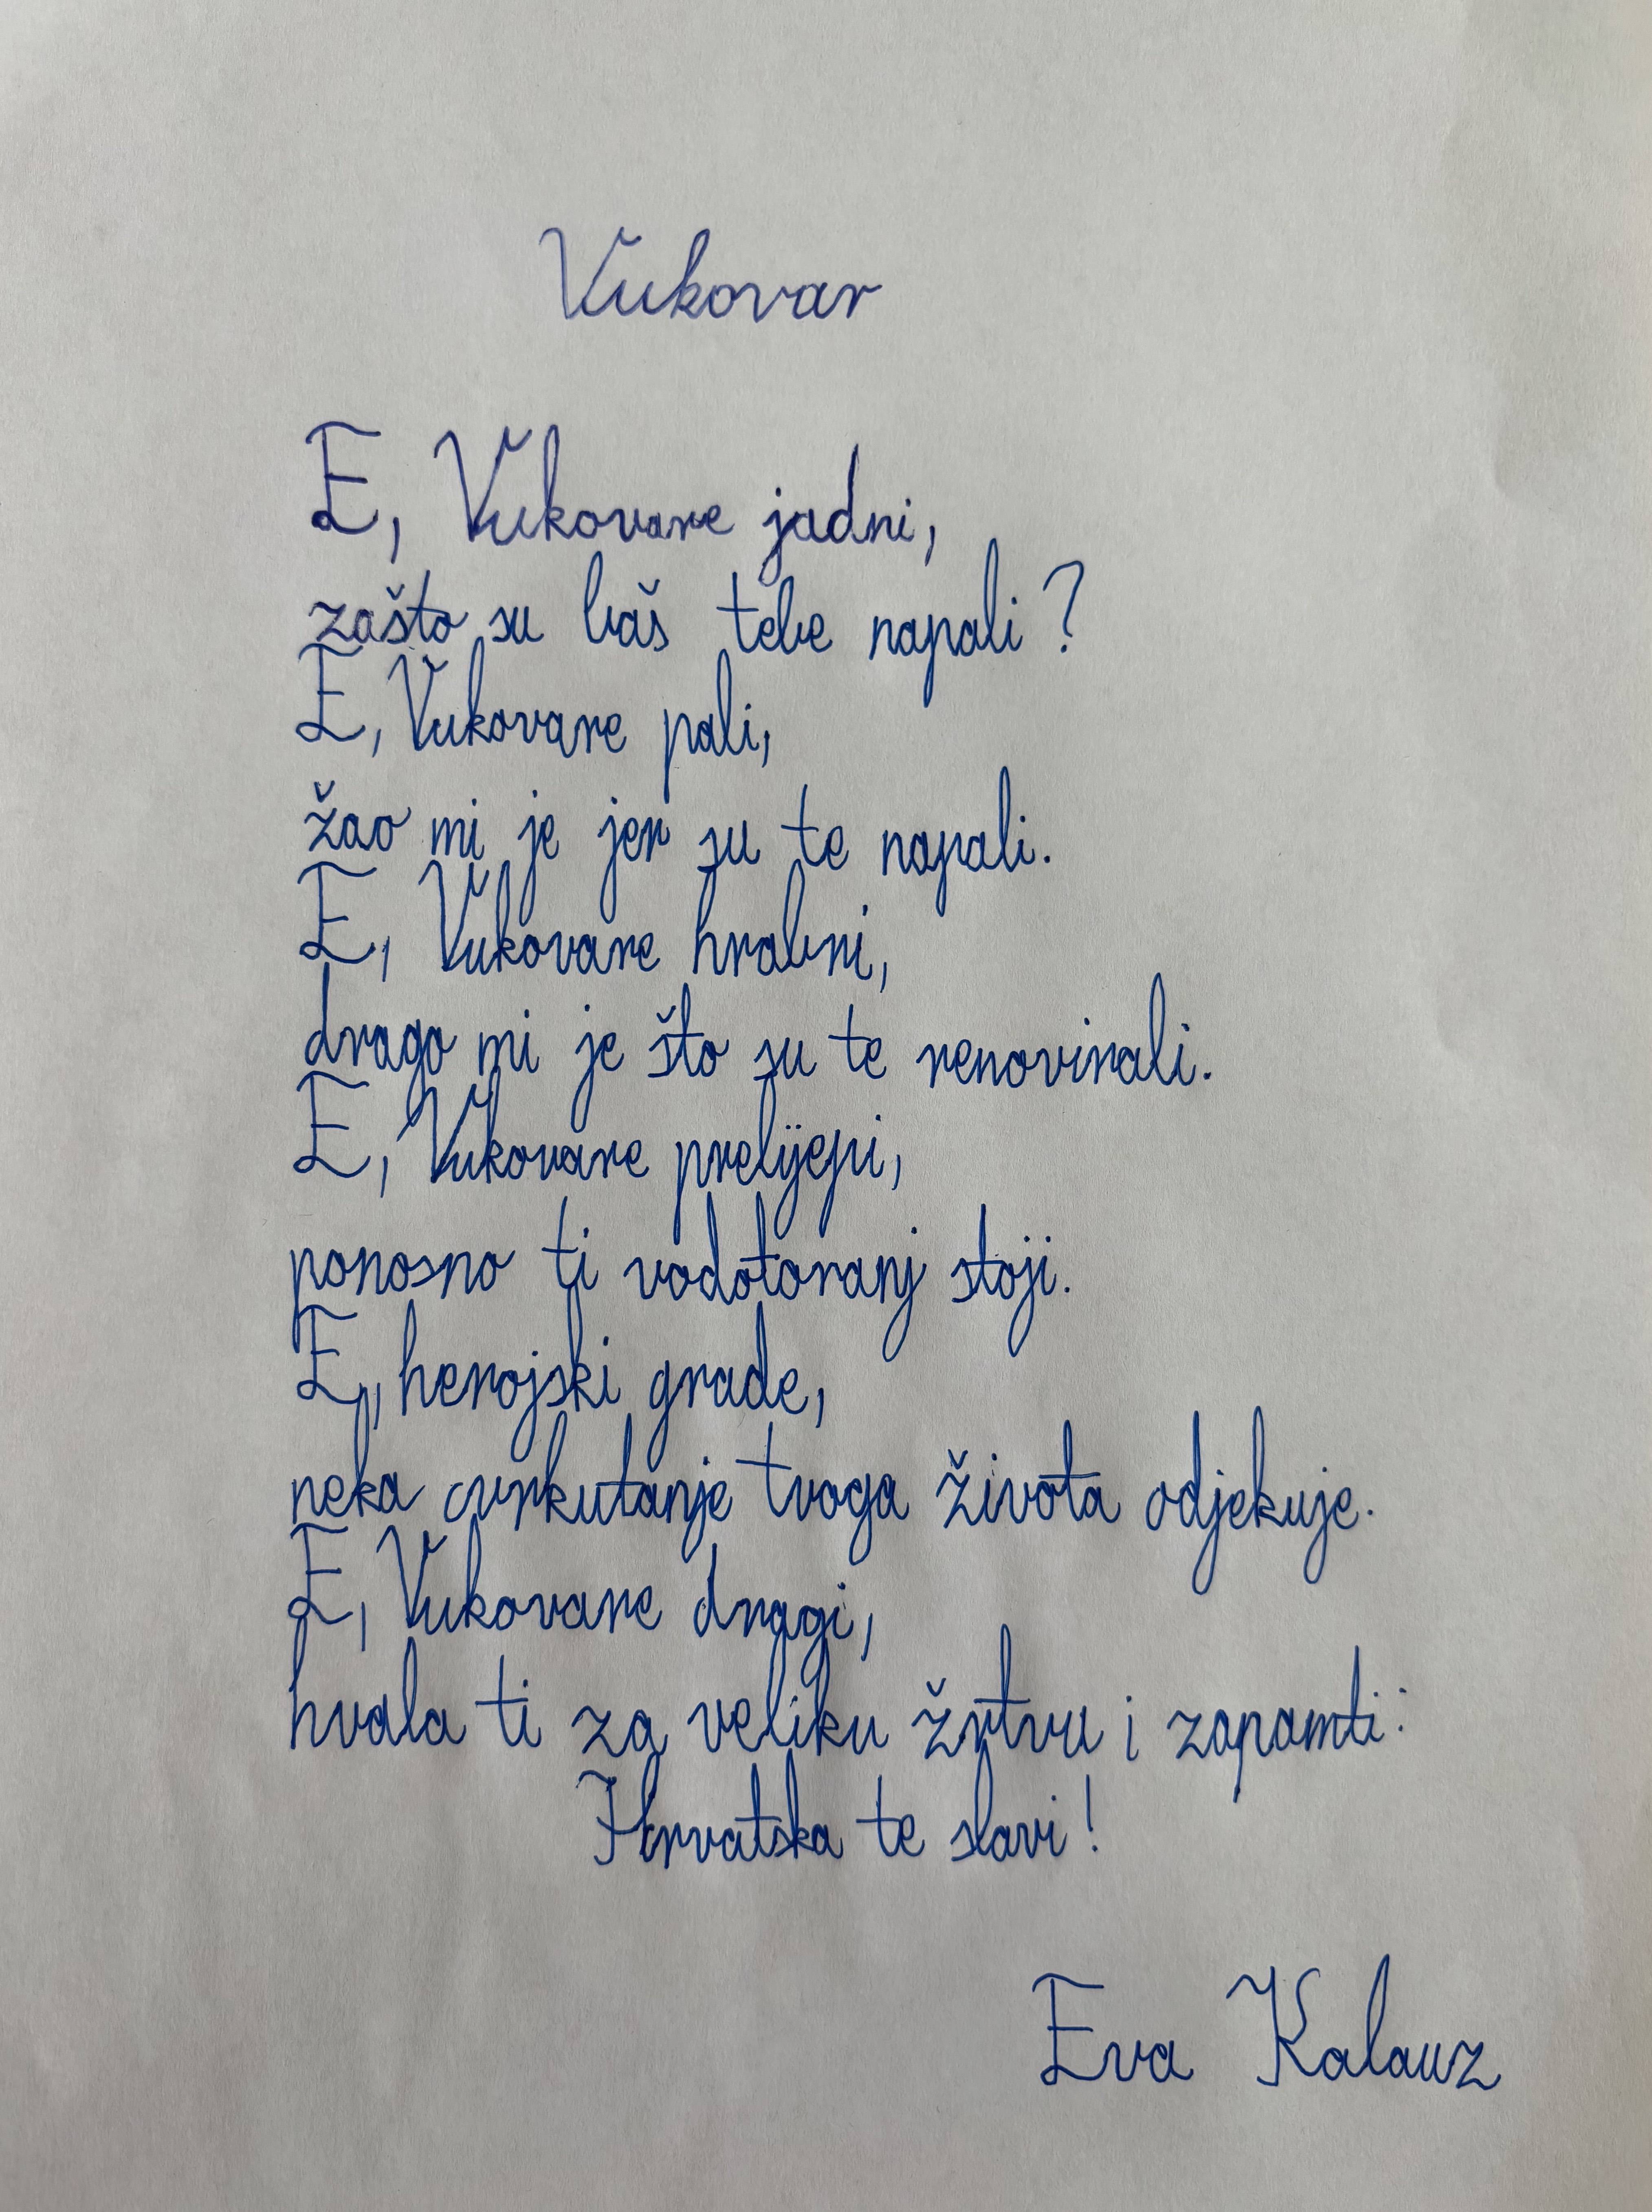 Vukovar
E, Vukovare jadni,
zašto su baš tebe napali?
E, Vukovare pali,
žao mi je jer su te napali.
E, Vukovare hrabri,
drago mi je što su te renovirali.
E, Vukovare prelijepi,
ponosno ti vodotoranj stoji.
E, herojski grade,
neka cvrkutanje tvoga života odjekuje.
E, Vukovare dragi,
hvala ti za veliku žrtvu i zapamti:
Hrvatska te slavi!
Eva Kalauz